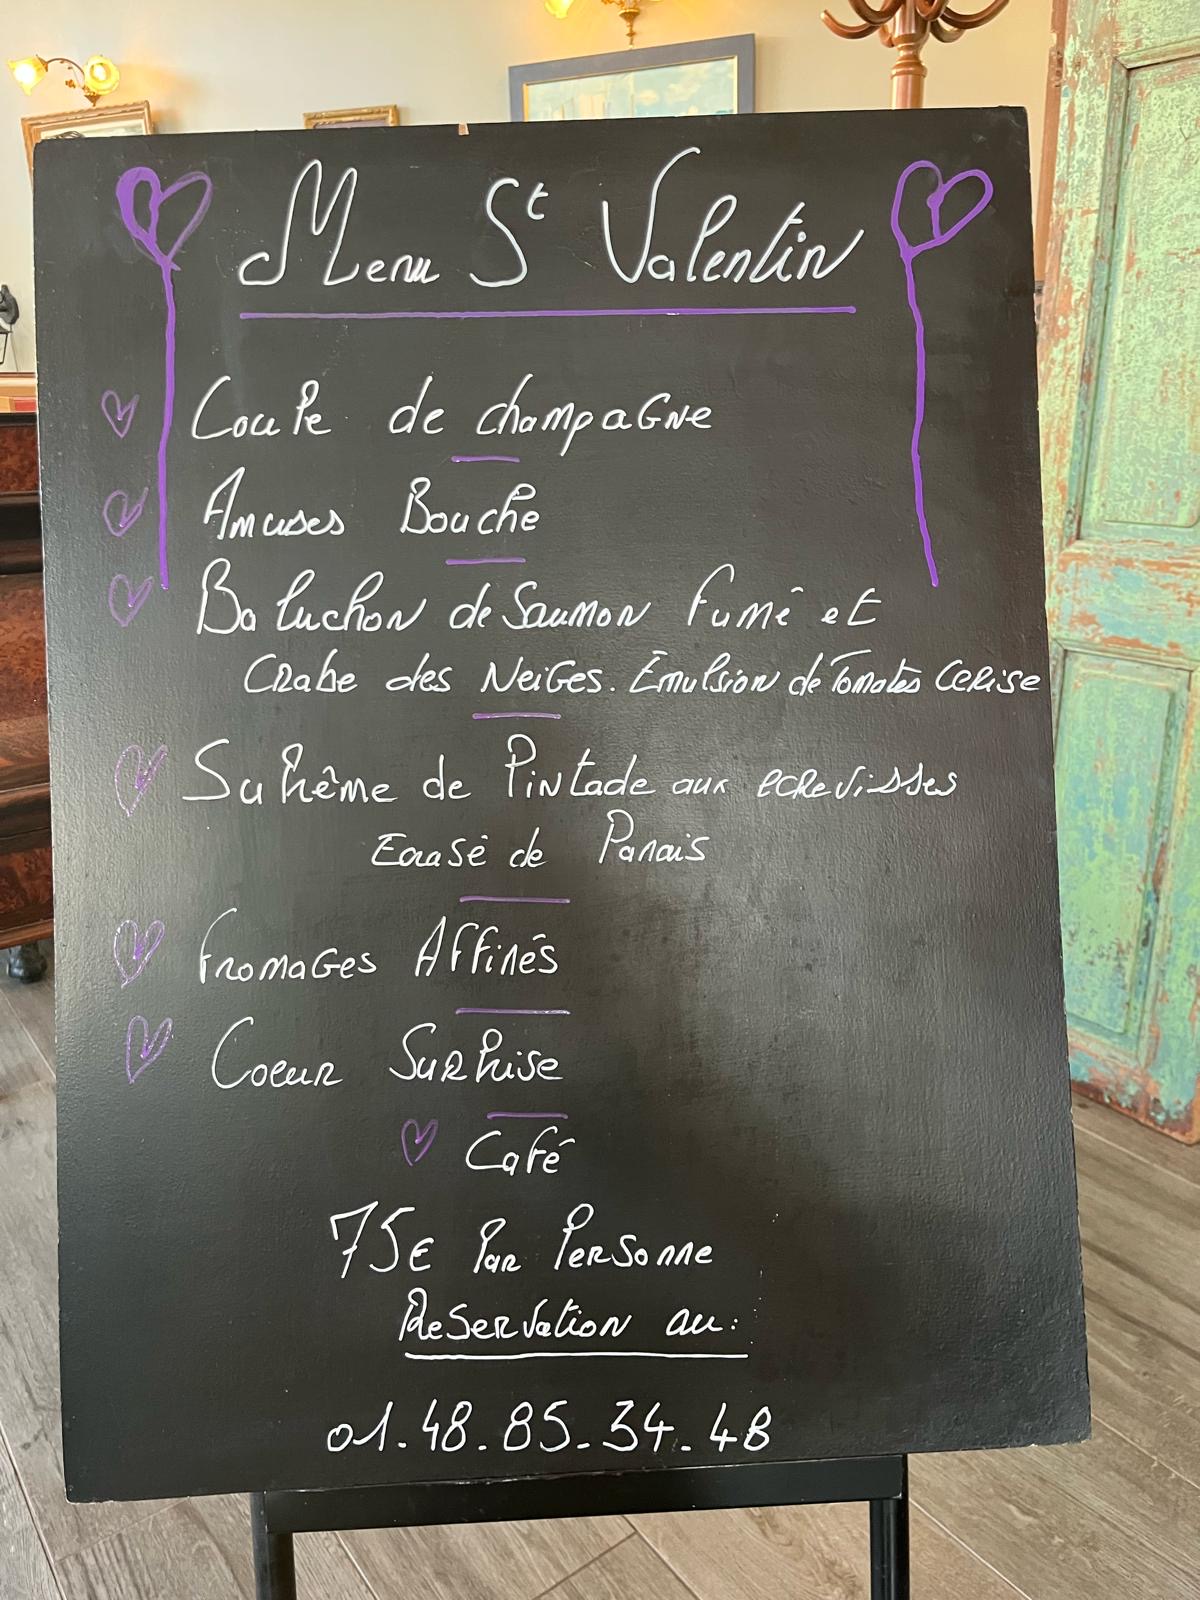 Menu St Valentin
Coupe de champagne
Amuses Bouche
Baluchon de Saumon Fumé et
Crabe des Neiges. Émulsion de Tomates Cerise
Suprême de Pintade aux ecrevisses
Ecrasé de Panais
Fromages Affinés
Coeur Surprise
Café
75€ Par Personne
Reservation au:
01.48.85.34.48